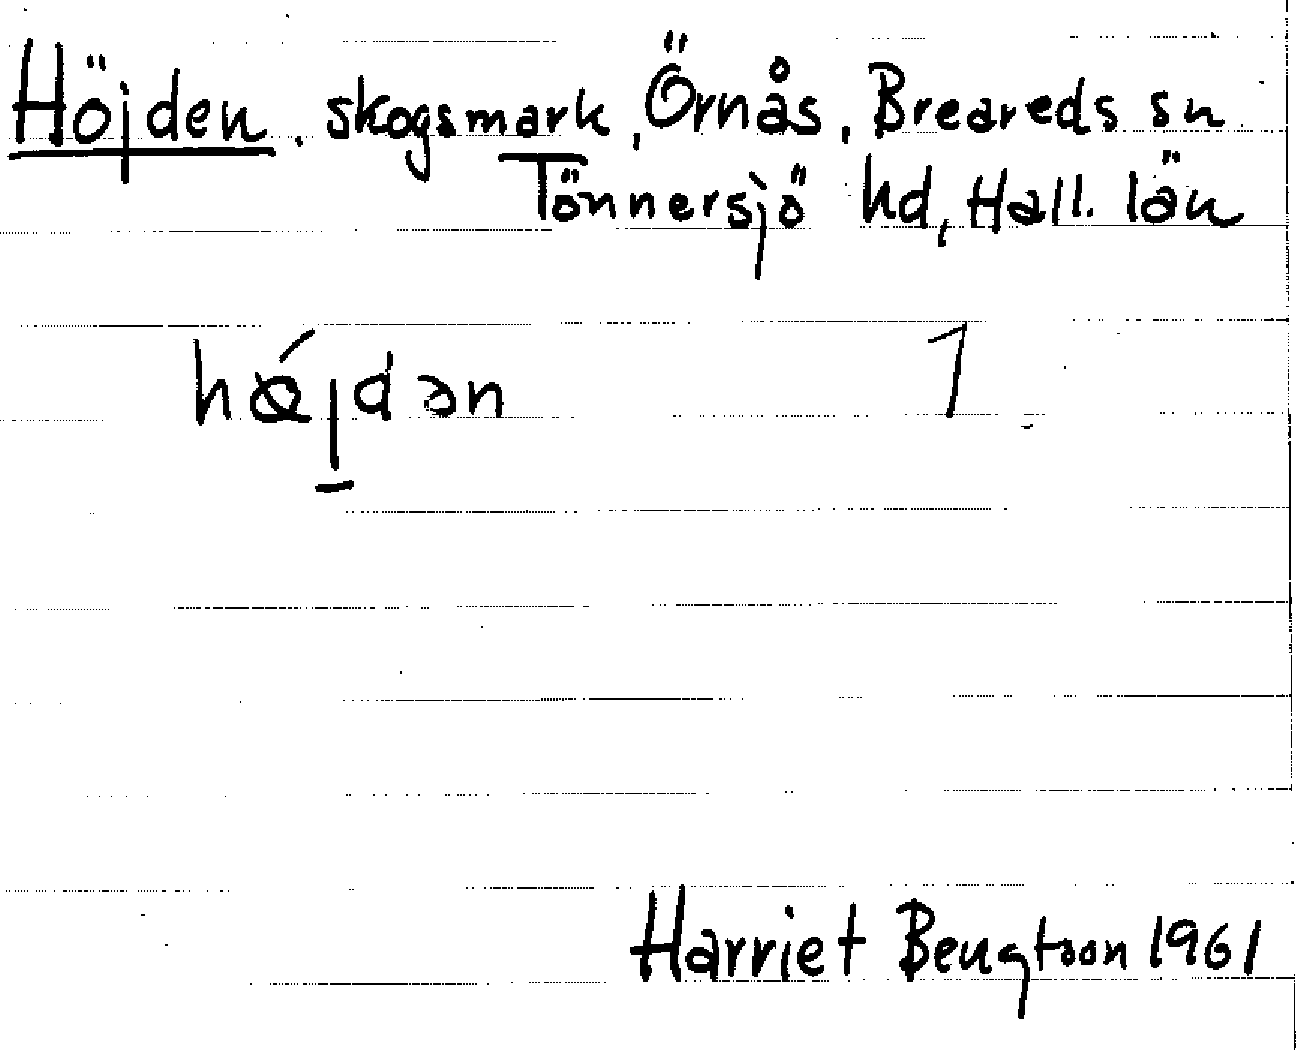 Höjden. skogsmark, Örnås, Breareds sn
Tönnersjö hd, Hall. län
hǿjdən 1
Harriet Bengtson 1961